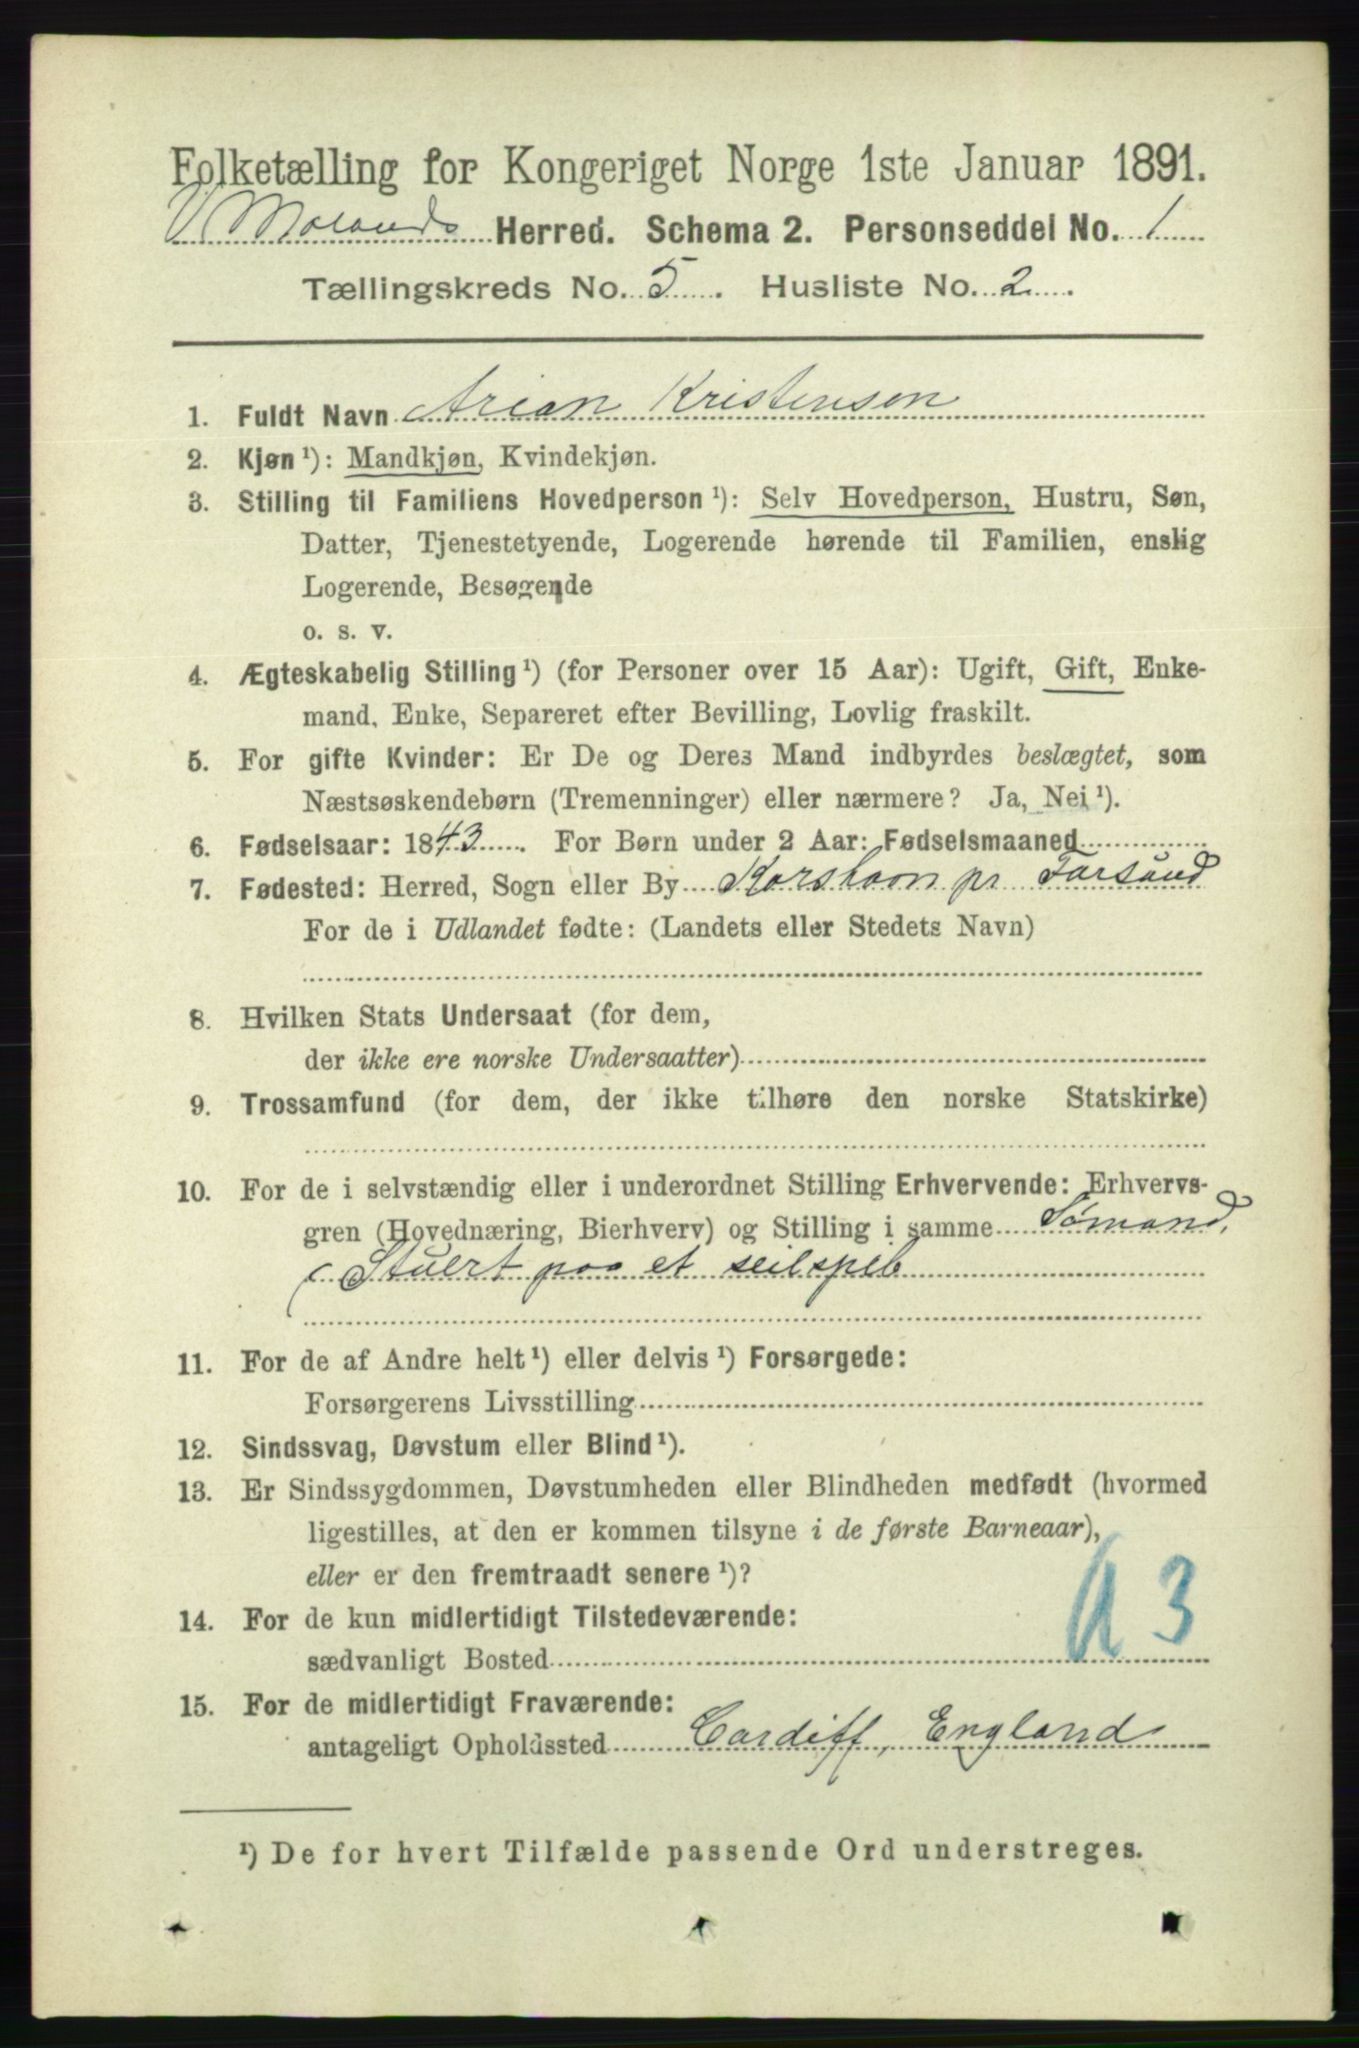 Folketælling for Kongeriget Norge 1ste Januar 1891.
V Molands Herred. Schema 2. Personseddel No. 1
Tællingskreds No. 5. Husliste No. 2.
1. Fuldt Navn Arian Kristensen
2. Kjøn ¹): Mandkjøn, Kvindekjøn.
3. Stilling til Familiens Hovedperson ¹): Selv Hovedperson, Hustru, Søn,
Datter, Tjenestetyende, Logerende hørende til Familien, enslig
Logerende, Besøgende
o. s. v.
4. Ægteskabelig Stilling ¹) (for Personer over 15 Aar): Ugift, Gift, Enke-
mand, Enke, Separeret efter Bevilling, Lovlig fraskilt.
5. For gifte Kvinder: Er De og Deres Mand indbyrdes beslægtet, som
Næstsøskendebørn (Tremenninger) eller nærmere? Ja, Nei ¹).
6. Fødselsaar: 1843. For Børn under 2 Aar: Fødselsmaaned
7. Fødested: Herred, Sogn eller By Korshavn pr Farsund
For de i Udlandet fødte: (Landets eller Stedets Navn)
8. Hvilken Stats Undersaat (for dem,
der ikke ere norske Undersaatter)
9. Trossamfund (for dem, der ikke tilhøre den norske Statskirke)
10. For de i selvstændig eller i underordnet Stilling Erhvervende: Erhvervs-
gren (Hovednæring, Bierhverv) og Stilling i samme Sømand,
(Stuert paa et seilspeb
11. For de af Andre helt ¹) eller delvis ¹) Forsørgede:
Forsørgerens Livsstilling
12. Sindssvag, Døvstum eller Blind ¹).
13. Er Sindssygdommen, Døvstumheden eller Blindheden medfødt (hvormed
ligestilles, at den er kommen tilsyne i de første Barneaar),
eller er den fremtraadt senere ¹)?
14. For de kun midlertidigt Tilstedeværende:
sædvanligt Bosted
A 3
15. For de midlertidigt Fraværende:
antageligt Opholdssted Cardiff, England
¹) De for hvert Tilfælde passende Ord understreges.